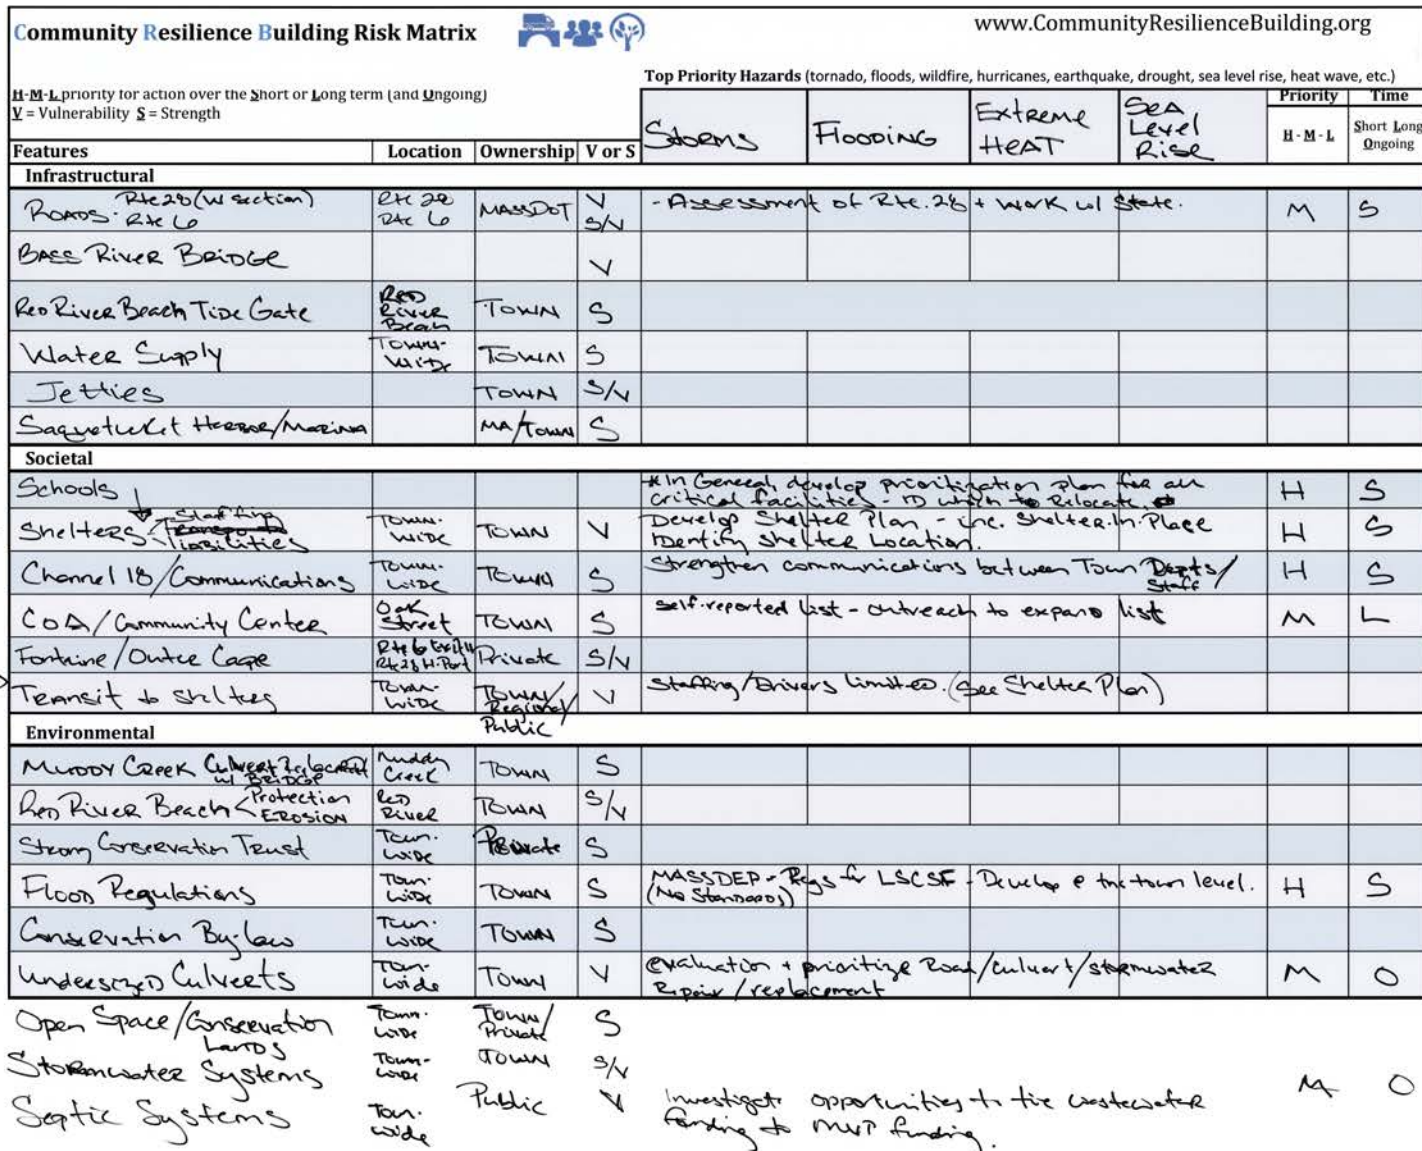 Community Resilience Building Risk Matrix
www.CommunityResilienceBuilding.org
Top Priority Hazards (tornado, floods, wildfire, hurricanes, earthquake, drought, sea level rise, heat wave, etc.)
H-M-L priority for action over the Short or Long term (and Ongoing)
V = Vulnerability S = Strength
Priority Time
Storms Flooding Extreme HEAT Sea Level Rise
H - M - L Short Long Ongoing
Features Location Ownership V or S
Infrastructural
Roads: Rte 28 (W section) Rte 28 MASSDOT V - Assessment of Rte. 28 + work w/ State. M S
Rte 6 Rte 6 S/V
Bass River Bridge V
Red River Beach Tide Gate Red River Beach Town S
Water Supply Town-Wide Town S
Jetties Town S/V
Saquetucket Harbor/Marina MA/Town S
Societal
Schools *In General, develop prioritization plan for all H S
critical facilities - ID which to Relocate.
Shelters Staffing Town-Wide Town V Develop Shelter Plan - inc. Shelter-In-Place H S
liabilities Identify Shelter Location.
Channel 18/Communications Town-Wide Town S Strengthen communications between Town Depts/ H S
Staff
CoA/Community Center Oak Street Town S self-reported list - outreach to expand list M L
/Outer Cape Rte 6 Rte 28 H-Port Private S/V
Transit to shelters Town-Wide Town/Regional/Public V Staffing/Drivers limited. (See Shelter Plan)
Environmental
Muddy Creek Culvert w/ Bridge Muddy Creek Town S
Red River Beach Protection Red River Town S/V
EROSION
Strong Conservation Trust Town-Wide Private S
Flood Regulations Town-Wide Town S MASSDEP - Regs for LSCSF - Develop @ the town level. H S
(No Standards)
Conservation By-law Town-Wide Town S
Undersized Culverts Town-wide Town V evaluation + prioritize Road/culvert/stormwater M O
Repair/replacement
Open Space/Conservation Town-Wide Town/Private S
Lands
Stormwater Systems Town-Wide Town S/V
Septic Systems Town-wide Public V Investigate opportunities to tie wastewater M O
funding to MVP funding.